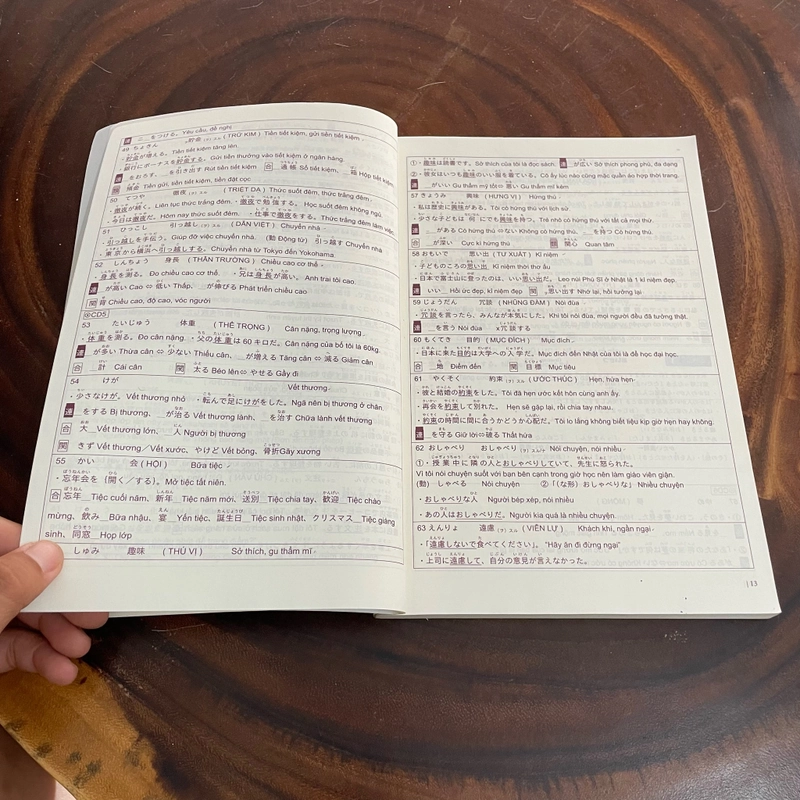 連 __をつける。Yêu cầu, đề nghị
49 ちょきん 貯金(ヲ)スル (TRỮ KIM) Tiền tiết kiệm, gửi tiền tiết kiệm
・貯金が増える。Tiền tiết kiệm tăng lên.
・銀行にボーナスを貯金する。Gửi tiền thưởng vào tiết kiệm ở ngân hàng.
連 __をおろす、__を引き出す Rút tiền tiết kiệm 合 __通帳 Sổ tiết kiệm、__箱 Hộp tiết kiệm
関 預金 Tiền gửi, tiền tiết kiệm, tiền đặt cọc
50 てつや 徹夜(ヲ)スル (TRIỆT DẠ) Thức suốt đêm, thức trắng đêm
・徹夜が続く。Liên tục thức trắng đêm. ・徹夜で勉強する。Học suốt đêm không ngủ.
・今日は徹夜だ。Hôm nay thức suốt đêm. ・仕事で徹夜をする。Thức trắng đêm làm việc.
51 ひっこし 引っ越し(ヲ)スル (DẪN VIỆT) Chuyển nhà
・引っ越しを手伝う。Giúp đỡ việc chuyển nhà. (動 Động từ) 引っ越す Chuyển nhà
・東京から横浜へ引っ越しする。Chuyển nhà từ Tokyo đến Yokohama.
52 しんちょう 身長 (THÂN TRƯỜNG) Chiều cao cơ thể
・身長を測る。Đo chiều cao cơ thể. ・兄は身長が高い。Anh trai tôi cao.
連 __が高い Cao ⇔ 低い Thấp、__が伸びる Phát triển chiều cao
関 背 Chiều cao, độ cao, vóc người
◎CD5
53 たいじゅう 体重 (THỂ TRỌNG) Cân nặng, trọng lượng
・体重を測る。Đo cân nặng. ・父の体重は60キロだ。Cân nặng của bố tôi là 60kg.
連 __が多い Thừa cân ⇔ 少ない Thiếu cân、__が増える Tăng cân ⇔ 減る Giảm cân
合 __計 Cái cân 関 太る Béo lên⇔ やせる Gầy đi
54 けが Vết thương
・少さなけが。Vết thương nhỏ ・転んで足にけがをした。Ngã nên bị thương ở chân.
連 __をする Bị thương、__が治る Vết thương lành、__を治す Chữa lành vết thương
合 大__Vết thương lớn、__人 Người bị thương
関 きず Vết thương／Vết xước、やけど Vết bỏng、骨折Gãy xương
55 かい 会 (HỘI) Bữa tiệc
・忘年会を {開く／する}。Mở tiệc tất niên.
合 忘年__Tiệc cuối năm、新年__Tiệc năm mới、送別__Tiệc chia tay、歓迎__Tiệc chào
mừng、飲み__Bữa nhậu、宴__Yến tiệc、誕生日__Tiệc sinh nhật、クリスマス__Tiệc giáng
sinh、同窓__Họp lớp
56 しゅみ 趣味 (THÚ VỊ) Sở thích, gu thẩm mĩ
①・趣味は読書です。Sở thích của tôi là đọc sách. 連 __が広い Sở thích phong phú, đa dạng
②・彼女はいつも趣味のいい服を着ている。Cô ấy lúc nào cũng mặc quần áo hợp thời trang.
連 __がいい Gu thẩm mỹ tốt⇔ 悪い Gu thẩm mĩ kém
57 きょうみ 興味 (HƯNG VỊ) Hứng thú
・私は歴史に興味がある。Tôi có hứng thú với lịch sử
・少さな子どもは何にでも興味を持つ。Trẻ nhỏ có hứng thú với tất cả mọi thứ.
連 __がある Có hứng thú ⇔ない Không có hứng thú、__を持つ Có hứng thú.
合 __が深い Cực kì hứng thú 関 関心 Quan tâm
58 おもいで 思い出 (TƯ XUẤT) Kỉ niệm
・子どものころの思い出 Kỉ niệm thời thơ ấu
・日本で富士山に登ったのは、いい思い出だ。Leo núi Phú Sĩ ở Nhật là 1 kỉ niệm đẹp.
連 いい__ Hồi ức đẹp, kỉ niệm đẹp 関 思い出す Nhớ lại, hồi tưởng lại
59 じょうだん 冗談 (NHŨNG ĐÀM) Nói đùa
・冗談を言ったら、みんなが本気にした。Khi tôi nói đùa, mọi người đều đã tưởng thật.
連 __を言う Nói đùa x冗談する
60 もくてき 目的 (MỤC ĐÍCH) Mục đích
・日本に来た目的は大学への入学だ。Mục đích đến Nhật của tôi là để học đại học.
合 __地 Điểm đến 関 目標 Mục tiêu
61 やくそく 約束(ヲ)スル (ƯỚC THÚC) Hẹn, hứa hẹn
・彼と結婚の約束をした。Tôi đã hẹn ước kết hôn cùng anh ấy.
・再会を約束して別れた。Hẹn sẽ gặp lại, rồi chia tay nhau.
・約束の時間に間に合うかどうか心配だ。Tôi lo lắng không biết liệu kịp giờ hẹn hay không.
連 __を守る Giữ lời⇔破る Thất hứa
62 おしゃべり おしゃべり(ヲ)スル/ナ Nói chuyện, nói nhiều
①・授業中に隣の人とおしゃべりしていて、先生に怒られた。
Vì tôi nói chuyện suốt với bạn bên cạnh trong giờ học nên làm giáo viên giận.
(動) しゃべる Nói chuyện ②「(な形) おしゃべりな」Nhiều chuyện
・おしゃべりな人 Người bép xép, nói nhiều
・あの人はおしゃべりだ。Người kia quả là nhiều chuyện.
63 えんりょ 遠慮(ヲ)スル (VIỄN LỰ) Khách khí, ngần ngại
・「遠慮しないで食べてください」。"Hãy ăn đi đừng ngại"
・上司に遠慮して、自分の意見が言えなかった。
|13